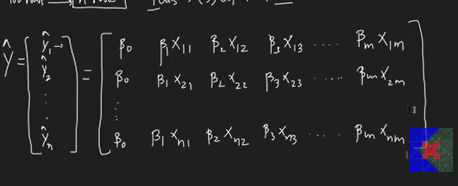 Ŷ = [ŷ₁ ŷ₂ . . . ŷₙ] = [β₀ β₁X₁₁ β₂X₁₂ β₃X₁₃ ..... βₘX₁ₘ
β₀ β₁X₂₁ β₂X₂₂ β₃X₂₃ ..... βₘX₂ₘ
⋮
β₀ β₁Xₙ₁ β₂Xₙ₂ β₃Xₙ₃ ..... βₘXₙₘ]